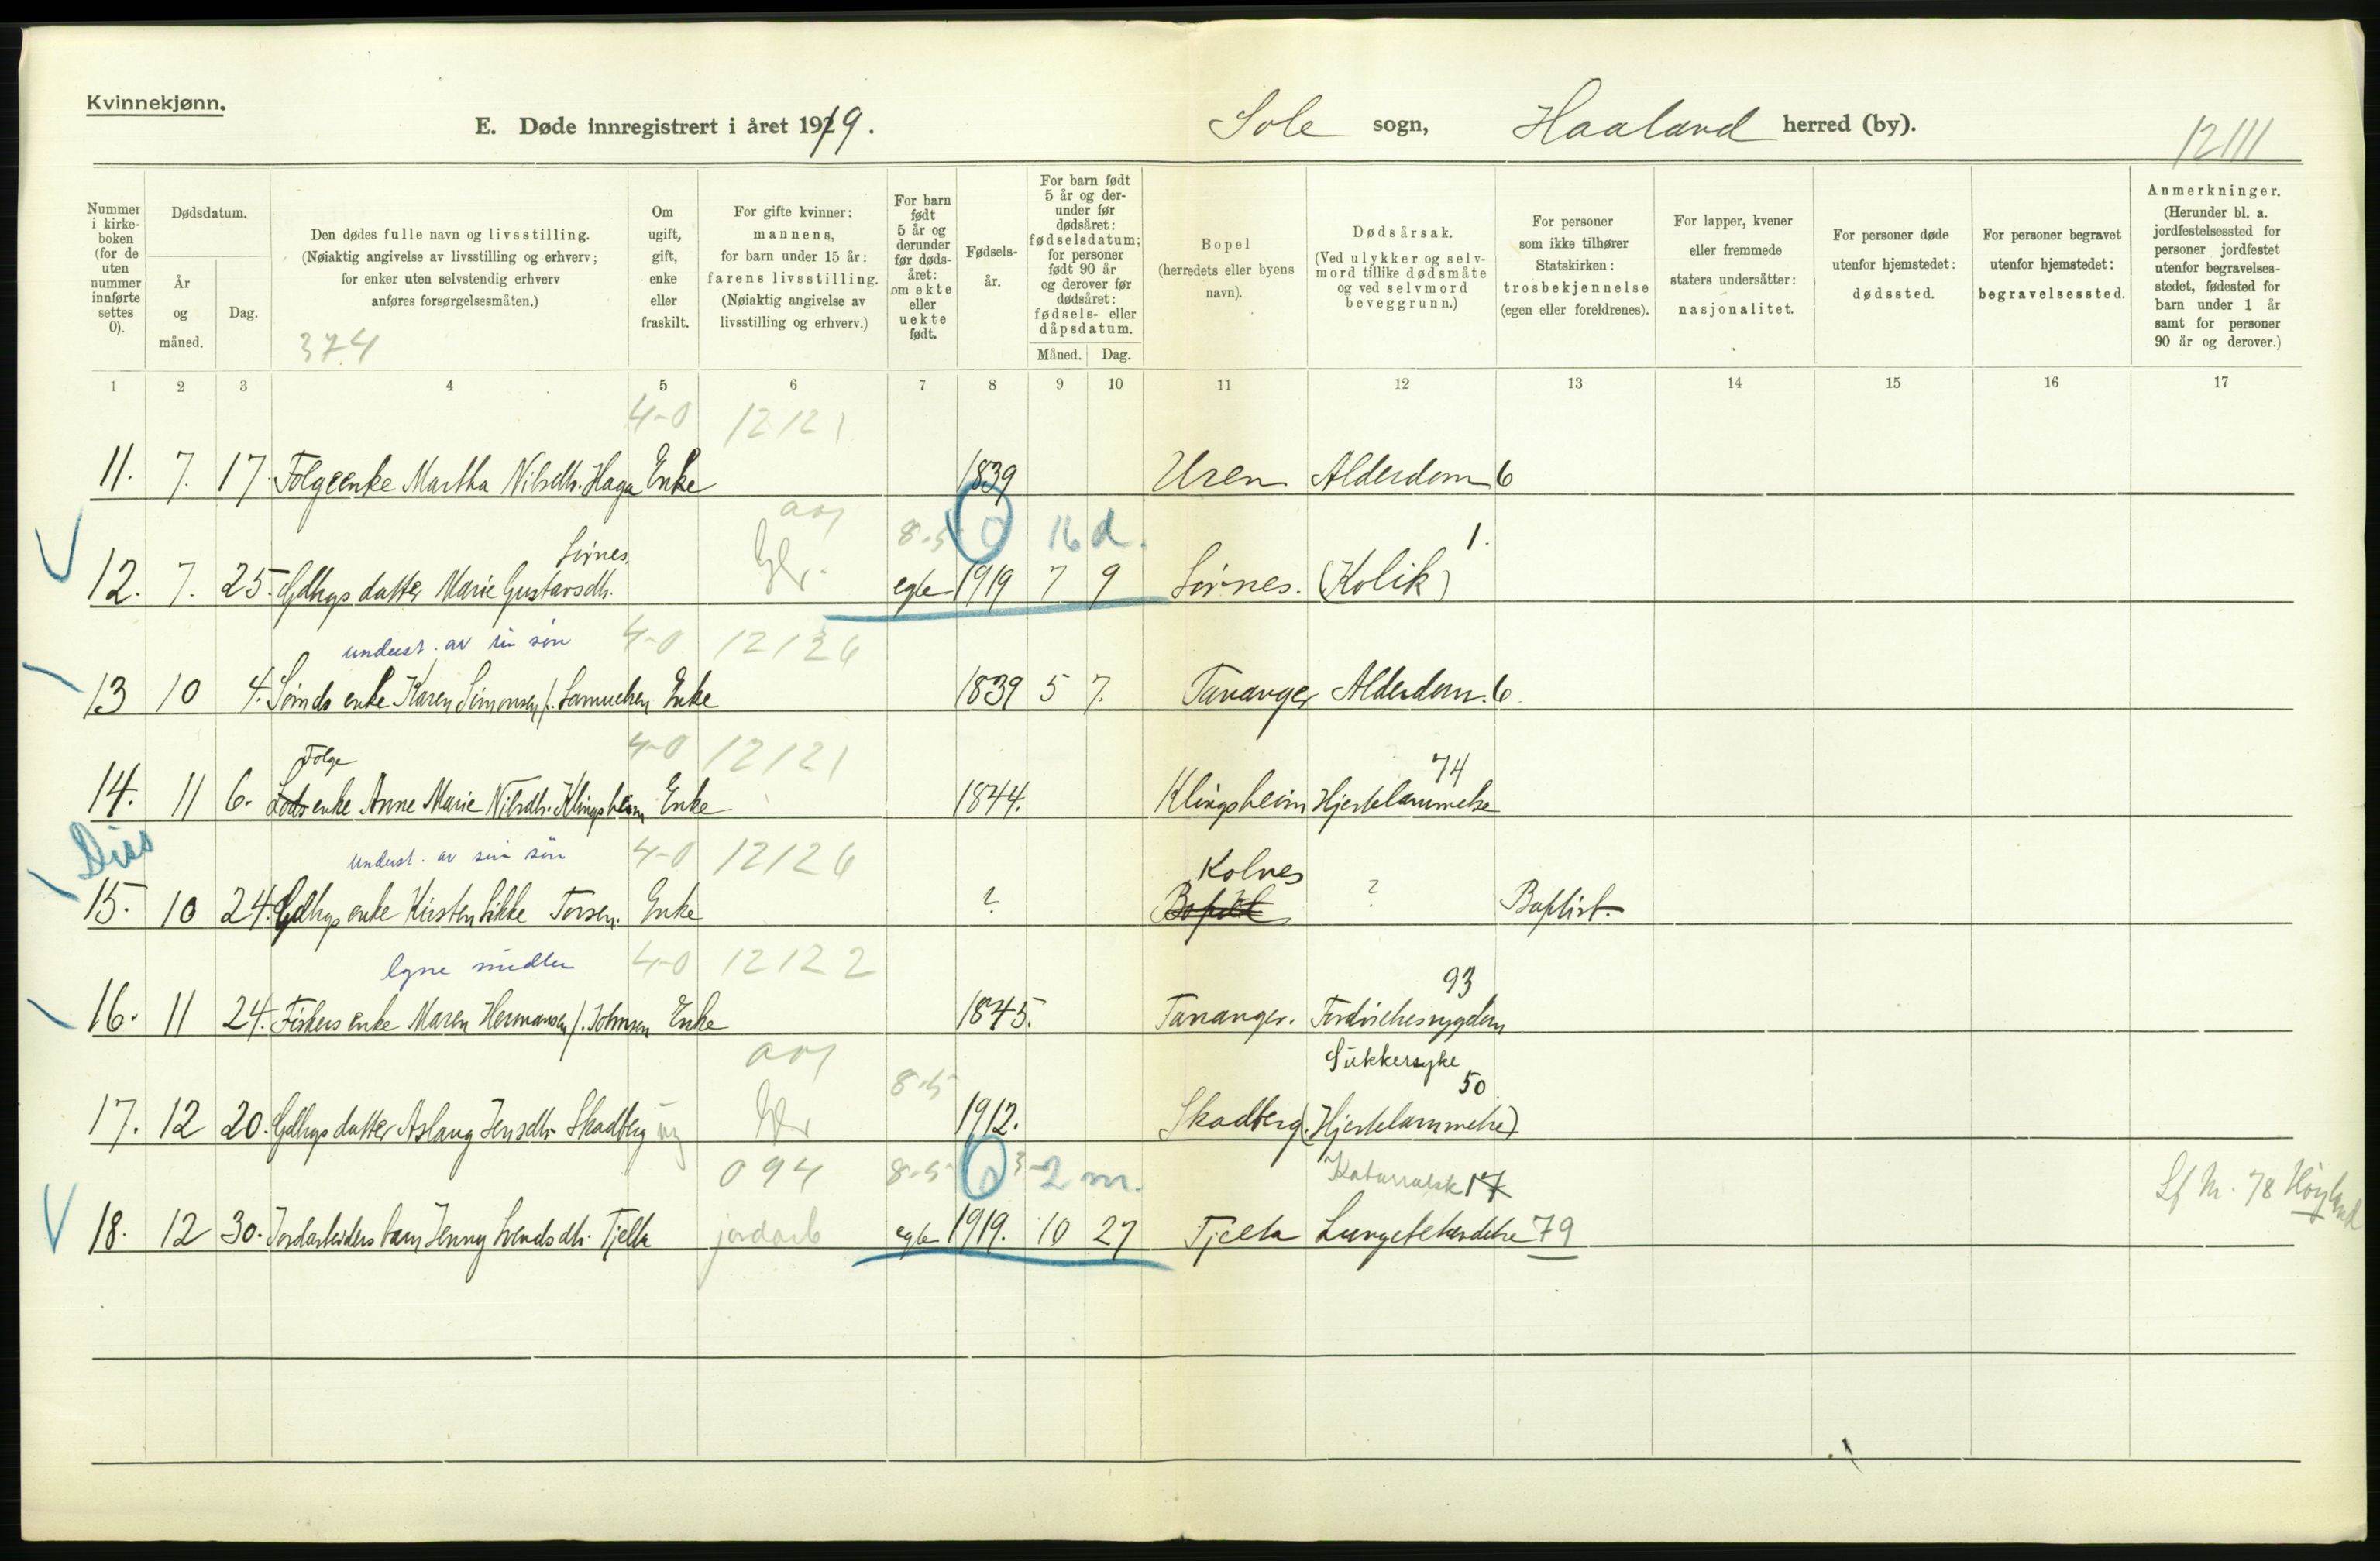 Kvinnekjønn.
E. Døde innregistrert i året 1919.
Sole sogn, Haaland herred (by).
12111
Nummer i kirke- boken (for de uten nummer innførte settes 0).
Dødsdatum.
År og måned.
Dag.
Den dødes fulle navn og livsstilling.
(Nøiaktig angivelse av livsstilling og erhverv;
for enker uten selvstendig erhverv
anføres forsørgelsesmåten.)
374
Om ugift, gift, enke eller fraskilt.
For gifte kvinner: mannens, for barn under 15 år: farens livsstilling. (Nøiaktig angivelse av livsstilling og erhverv.)
For barn født 5 år og derunder før døds- året: om ekte eller uekte født.
Fødsels- år.
For barn født 5 år og der- under før dødsåret: fødselsdatum; for personer født 90 år og derover før dødsåret: fødsels- eller dåpsdatum.
Måned. Dag.
Bopel (herredets eller byens navn).
Dødsårsak. (Ved ulykker og selv- mord tillike dødsmåte og ved selvmord beveggrunn.)
For personer som ikke tilhører Statskirken: trosbekjennelse (egen eller foreldrenes).
For lapper, kvener eller fremmede staters undersåtter: nasjonalitet.
For personer døde utenfor hjemstedet: dødssted.
For personer begravet utenfor hjemstedet: begravelsessted.
Anmerkninger. (Herunder bl. a. jordfestelsessted for personer jordfestet utenfor begravelses- stedet, fødested for barn under 1 år samt for personer 90 år og derover.)
1 2 3 4 5 6 7 8 9 10 11 12 13 14 15 16 17
4-0 12121
11. 7. 17. Følgeenke Martha Nilsdtr. Haga Enke 1839 Uren Alderdom 6
8-5 0 16 d.
Sørnes. 1.
12. 7. 25. Gdbrgs datter Marie Gustavsdtr. Gbr. egte 1919 7 9 Sørnes. (Kolik)
underst. av sin søn 4-0 12126
13 10 4. Sømds enke Karen Simonsen f. Samuelsen Enke 1839 5 7. Tananger Alderdom. 6.
Følge 4-0 12121 74
14. 11 6. Lods enke Anne Marie Nilsdtr. Klingsheim Enke 1844. Klingsheim Hjertelammelse
Diss
underst. av sin søn 4-0 12126 Kolnes
15. 10 24. Gdbrgs enke Kirsten Sikke Torsen. Enke ? ? Baptist.
Egne midler 4-0 12122 93
16. 11 24. Fiskers enke Maren Hermansen f. Johnsen Enke 1845. Tananger.
8-5 Sukkersyke 50
17. 12 20. Gdbrgs datter Aslaug Jensdtr. Skadberg ug Gbr 1912. Skadberg (Hjertelammelse)
094 8-5 0 3 2 m. Katarralsk 17
18. 12 30. Jordarbeiders barn Jenny Svendsdtr. Tjelta jordarb egte 1919. 10 27 Tjelta Lungebetændelse 79
Lf Nr. 78 Høyland